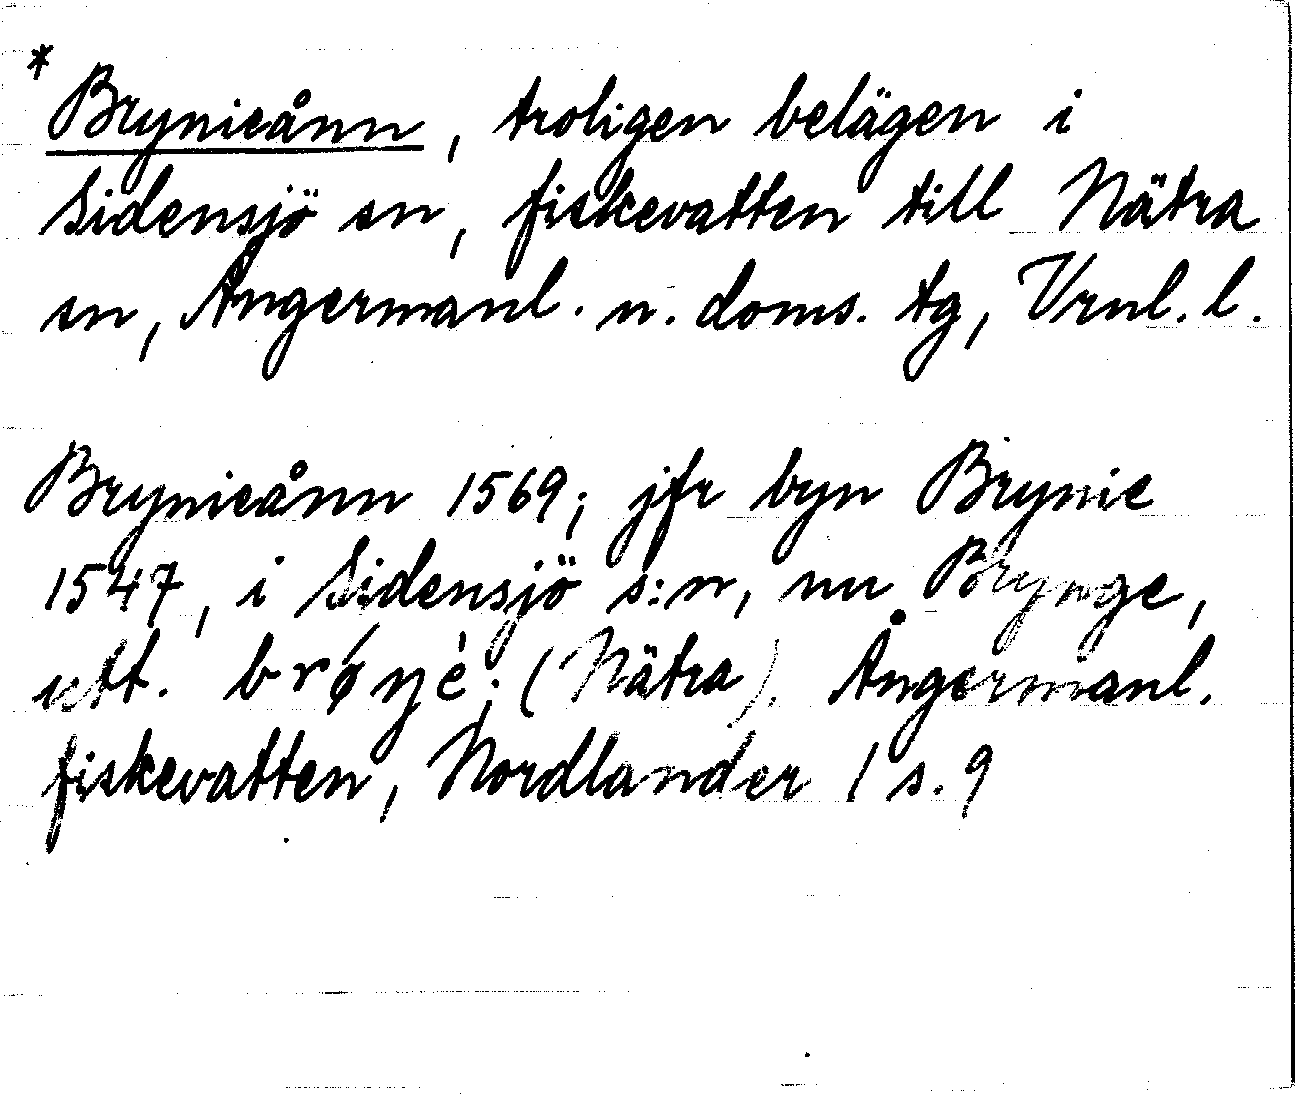 * Brynieånn, troligen belägen i
Sidensjö sn, fiskevatten till Nätra
sn, Ångermanl. n. doms. tg, Vrnl. l.
Brynieånn 1569; jfr byn Brynie
1547, i Sidensjö s:n, nu Brynge,
utt. brǿŋè; (Nätra). Ångermanl.
fiskevatten, Nordlander 1 s. 9